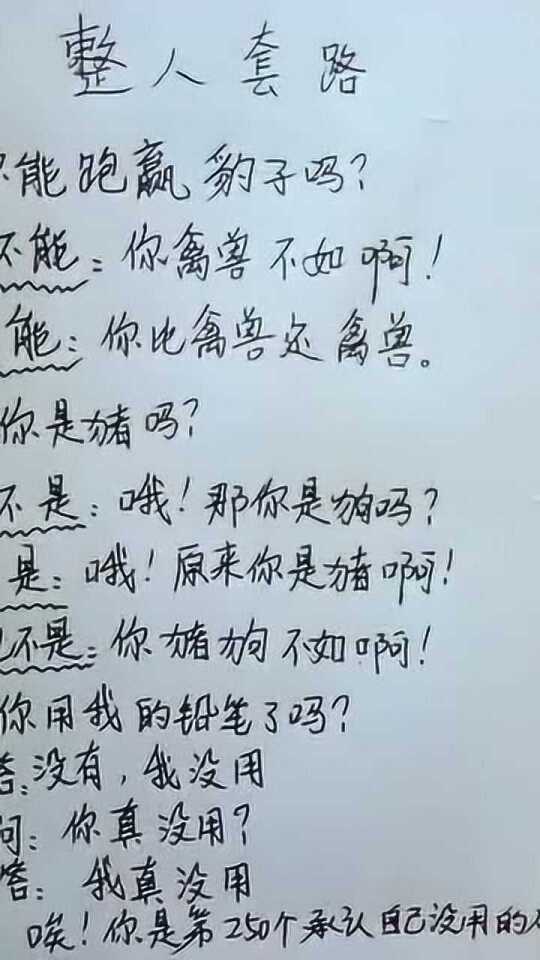 整人套路
你能跑赢豹子吗?
不能:你禽兽不如啊!
能:你比禽兽还禽兽。
你是猪吗?
不是:哦!那你是狗吗?
是:哦!原来你是猪啊!
也不是:你猪狗不如啊!
你用我的铅笔了吗?
答:没有,我没用
问:你真没用?
答:我真没用
唉!你是第250个承认自己没用的人